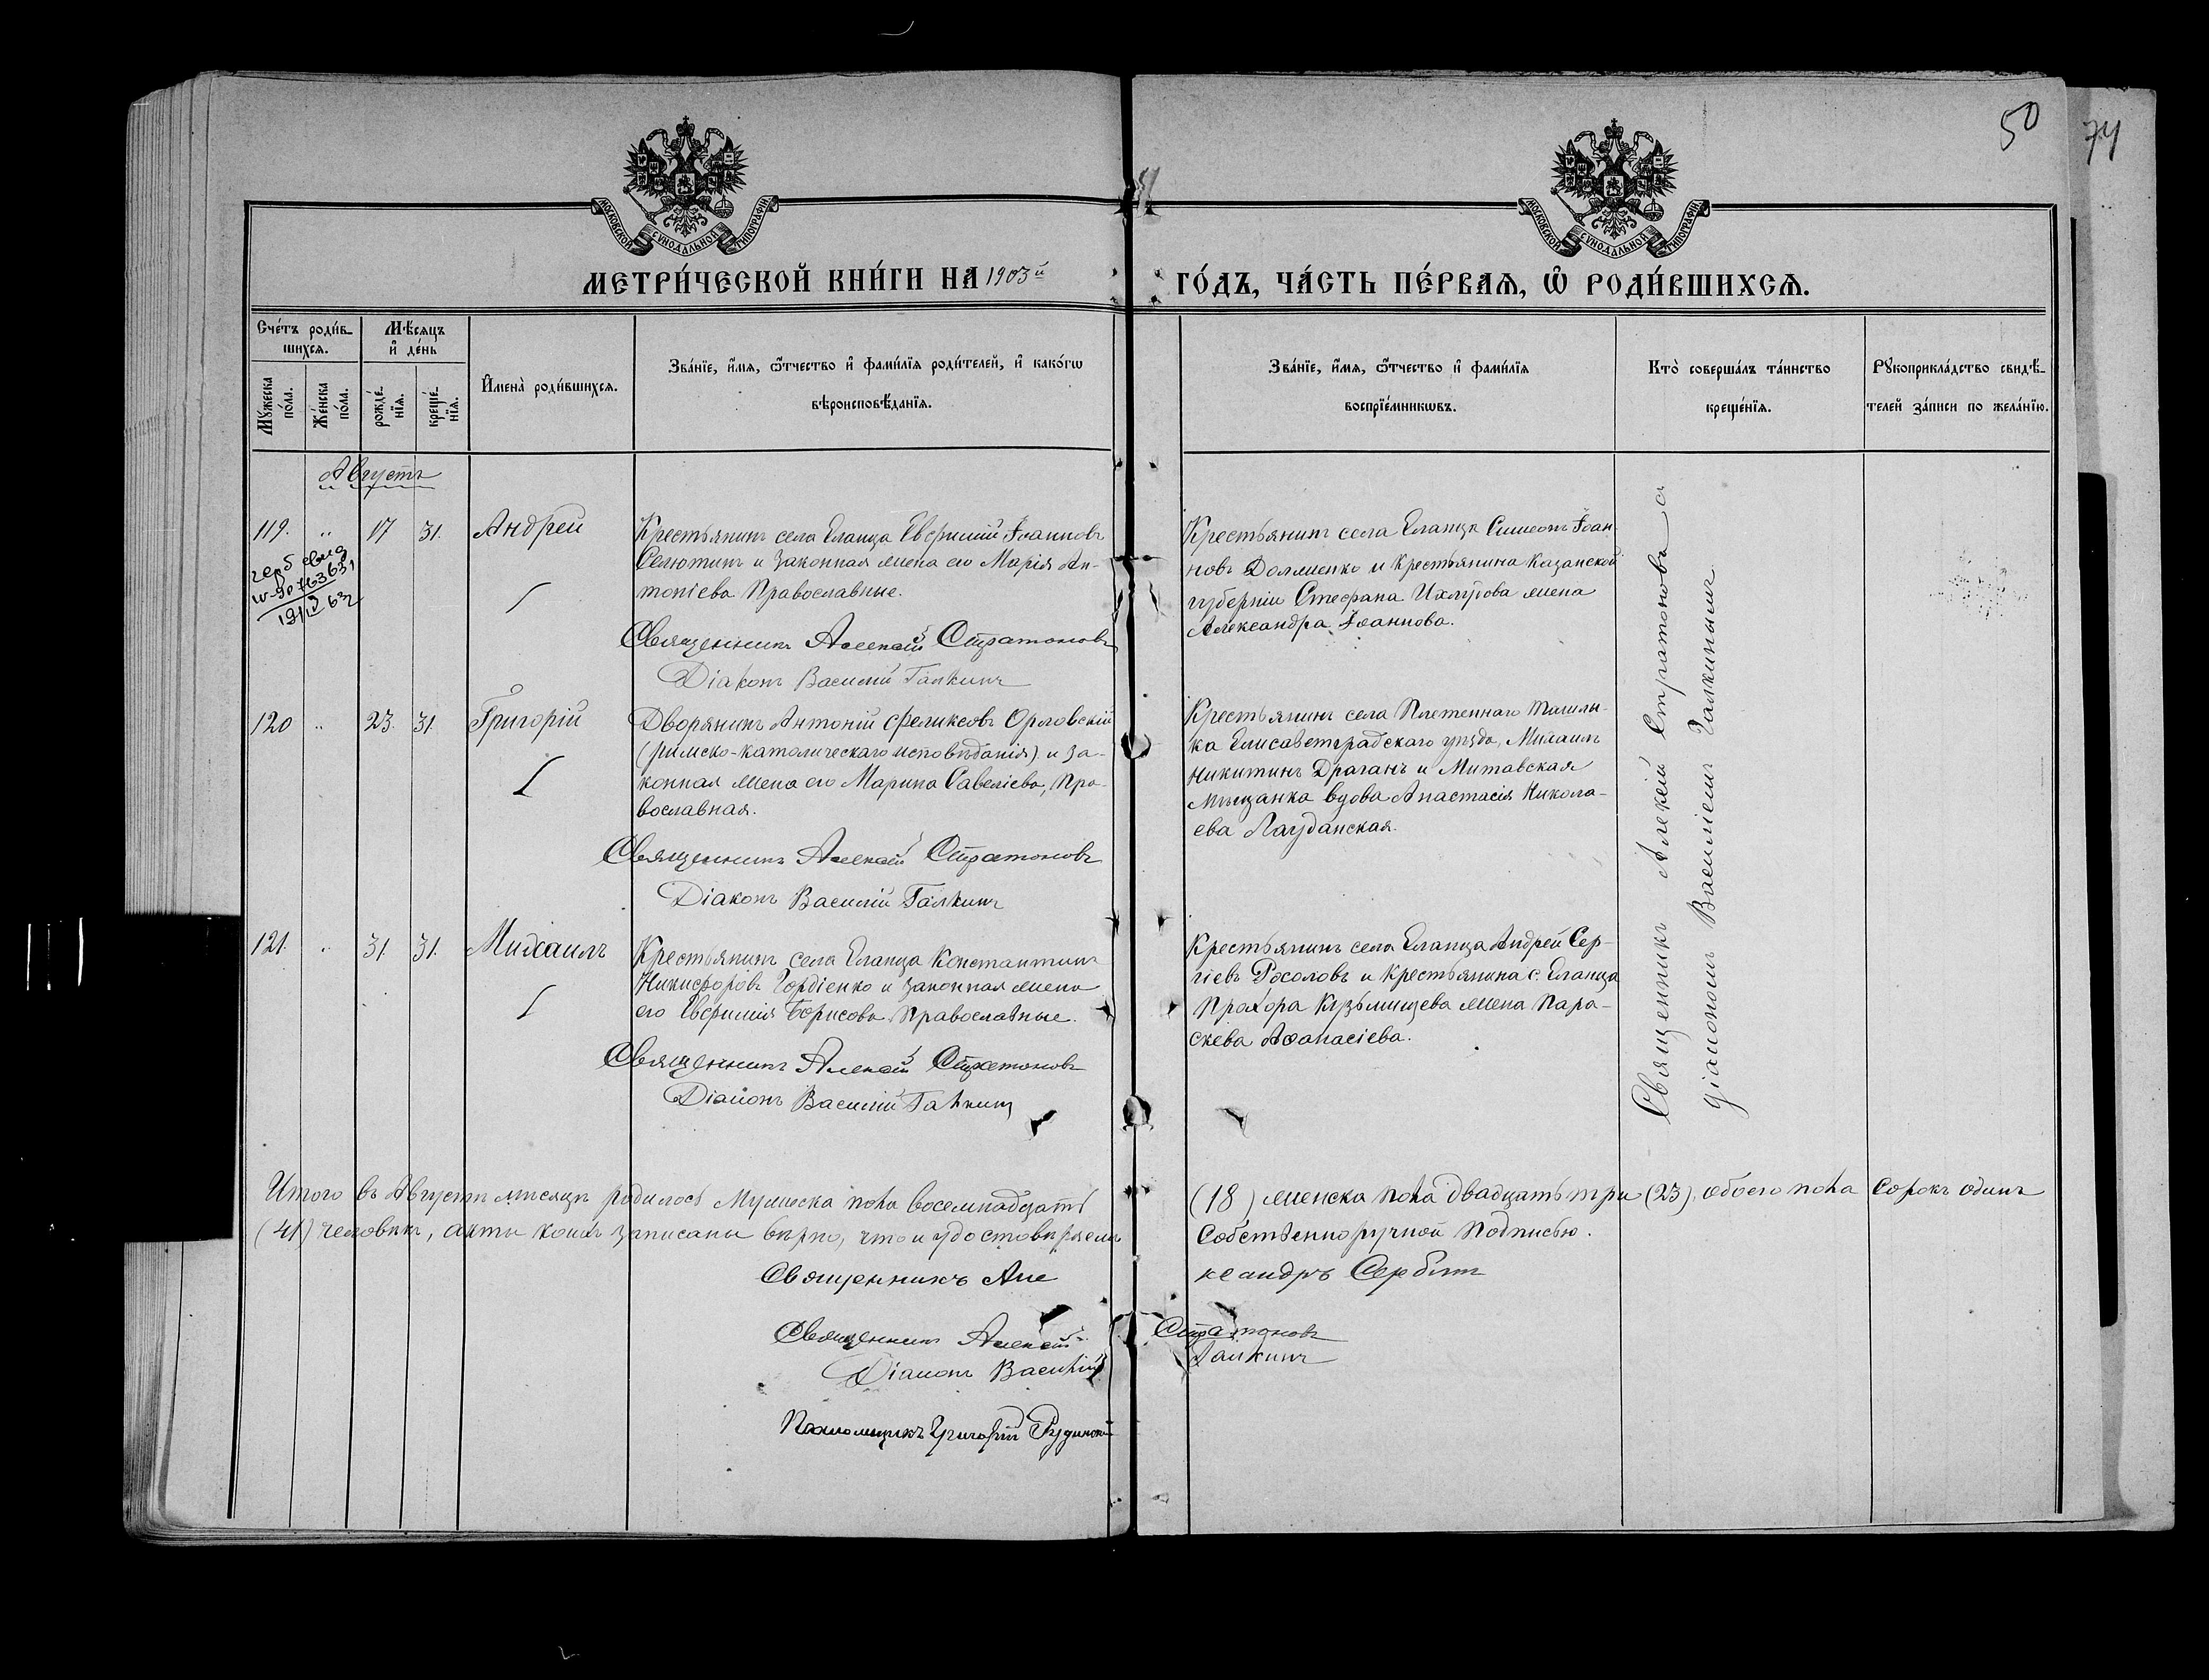 50
74
МОСКОВСКОЙ СѴНОДАЛЬНОЙ ТИПОГРАФІИ
МОСКОВСКОЙ СѴНОДАЛЬНОЙ ТИПОГРАФІИ
МЕТРИ́ЧЕСКОЙ КНИ́ГИ НА 1903й ГО́ДЪ, ЧА́СТЬ ПЕ́РВАЯ, Ѡ РОДИ́ВШИХСѦ.
Сче́тъ роди́в-
шихсѧ.
Мꙋжеска по́ла.
Же́нска по́ла.
Мѣ́сѧцъ
и҆ де́нь
рожде́-
нїѧ.
креще́-
нїѧ.
И҆мена̀ роди́вшихсѧ.
Зва́нїе, и҆́мѧ, ѻ҆́тчество и҆ фами́лїѧ роди́телей, и҆ како́гѡ
вѣроисповѣ́данїѧ.
Зва́нїе, и҆́мѧ, ѻ҆́тчество и҆ фами́лїѧ
воспрїе́мникѡвъ.
Кто̀ соверша́лъ та́инство
креще́нїѧ.
Рꙋкоприкла́дство свидѣ́-
телей за́писи по жела́нїю.
Августъ
119. " 17 31. Андрей
герб свид
Крестьянинъ села Еланца Евфимій Іоанновъ
Селютинъ и законная жена его Марія Ан-
тоніева Православные.
Священникъ Алексій Стратоновъ
Діаконъ Василій Галкинъ
Крестьянинъ села Еланца Симеонъ Іоан-
новъ Долженко и Крестьянина Казанской
губерніи Стефана жена
Александра Іоаннова.
120 " 23. 31. Григорій
Дворянинъ Антоній Феликсовъ Орловскій
(римско-католическаго исповѣданія) и за-
конная жена его Марина Савеліева, Пра-
вославная.
Священникъ Алексій Стратоновъ
Діаконъ Василій Галкинъ
Крестьянинъ села Плетеннаго Ташлы-
ка Елисаветградскаго уѣзда, Михаилъ
Никитинъ Драганъ и Митавская
Мѣщанка вдова Анастасія Никола-
ева Лауданская.
121. " 31. 31. Михаилъ
Крестьянинъ села Еланца Константинъ
Никифоровъ Гордіенко и законная жена
его Евфимія Борисова Православные.
Священникъ Алексій Стратоновъ
Діаконъ Василій Галкинъ
Крестьянинъ села Еланца Андрей Сер-
гіевъ Росоловъ и Крестьянина с. Еланца
Прохора Кузьмищева жена Пара-
скева Аѳанасіева.
Священникъ Алексій Стратоновъ съ
діакономъ Василіемъ Галкинымъ
Итого въ Августѣ мѣсяцѣ родилось Мужеска пола восемнадцать (18) женска пола двадцать три (23), обоего пола сорокъ одинъ
(41) человѣкъ, акты коихъ записаны вѣрно, что и удостовѣряемъ собственноручной подписью.
Священникъ Александръ Сербинъ
Священникъ Алексій Стратоновъ
Діаконъ Василій Галкинъ
Псаломщикъ Григорій